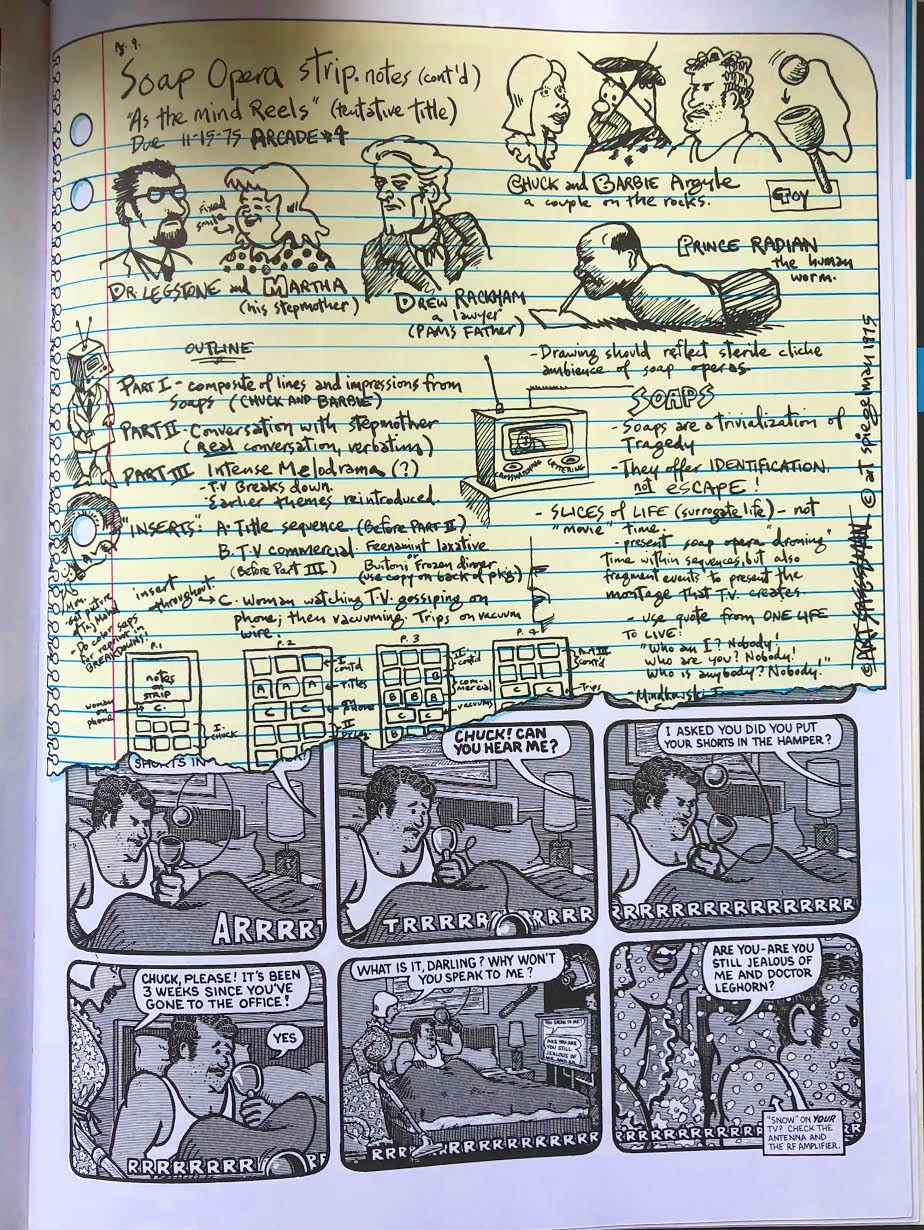 Pg. 9.
Soap Opera strip. notes (cont'd)
"As the Mind Reels" (tentative title)
Due 11-15-75 ARCADE #4
CHUCK and BARBIE Argyle
a couple on the rocks.
TOY
fixed
smile
DR. LEGSTONE and MARTHA
(his stepmother)
DREW RACKHAM
a lawyer
(PAM'S FATHER)
PRINCE RADIAN
the human
worm.
OUTLINE
PART I - composite of lines and impressions from
Soaps (CHUCK AND BARBIE)
PART II - Conversation with stepmother
(Real conversation, verbatim)
PART III Intense Melodrama (?)
- T.V Breaks down.
- Earlier themes reintroduced.
"INSERTS": A. Title sequence (Before PART II)
B. T.V commercial Feenamint laxative
(Before Part III) or Buitoni Frozen dinner
(use copy on back of pkg)
insert
throughout
C. Woman watching T.V. gossiping on
phone; then vacuuming. Trips on vacuum
wire.
- Do color seps
for reprint in
BREAKDOWNS!
- Drawing should reflect sterile cliche
ambience of soap operas.
SOAPS
- Soaps are a trivialization of
Tragedy
- They offer IDENTIFICATION,
not ESCAPE!
- SLICES OF LIFE (surrogate life) - not
"movie" time.
- present soap opera "droning"
time within sequences, but also
fragment events to present the
montage that T.V. creates
- use quote from ONE LIFE
TO LIVE:
"Who am I? Nobody!
who are you? Nobody!
Who is anybody? Nobody!"
© art spiegelman 1975
© ART SPIEGELMAN
P.1
notes
on
STRIP
C.
woman
on
phone
I-
CHUCK
P.2
I
cont'd
A A A
TITLES
C C
phone
II
P.3
II
cont'd
B
commercial
B B B
C C
vacuums
B C
P.4
PART III
cont'd
C C
Trips
SHORTS IN
CHUCK! CAN
YOU HEAR ME?
I ASKED YOU DID YOU PUT
YOUR SHORTS IN THE HAMPER?
ARRRR
TRRRRR RRRR
RRRRRRRRRRRRRRR
CHUCK, PLEASE! IT'S BEEN
3 WEEKS SINCE YOU'VE
GONE TO THE OFFICE!
YES
RRRRRRRRR RR
WHAT IS IT, DARLING? WHY WON'T
YOU SPEAK TO ME?
YOU SPEAK TO ME?
ARE YOU-ARE
YOU STILL
JEALOUS OF
ME AND
RRR RRRRRRRRRR
ARE YOU-ARE YOU
STILL JEALOUS OF
ME AND DOCTOR
LEGHORN?
"SNOW" ON YOUR
TV? CHECK THE
ANTENNA AND
THE RF AMPLIFIER.